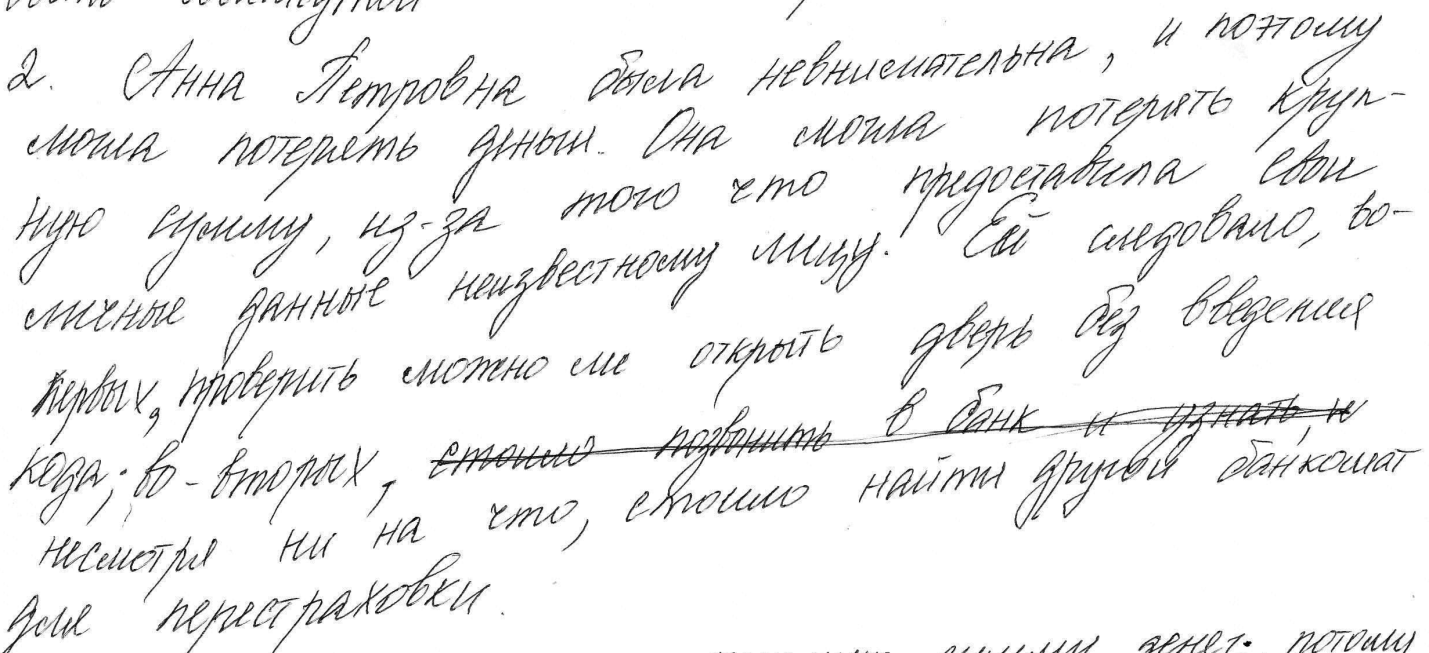 2. Анна Петровна была невнимательна, и поэтому
могла потерять деньги. Она могла потерять круп-
ную сумму, из-за того что предоставила свои
личные данные неизвестному лицу. Ей следовало, во-
первых, проверить можно ли открыть дверь без введения
кода; во-вторых, стоило позвонить в банк и узнать, и
несмотря ни на что, стоило найти другой банкомат
для перестраховки.
денег. потому